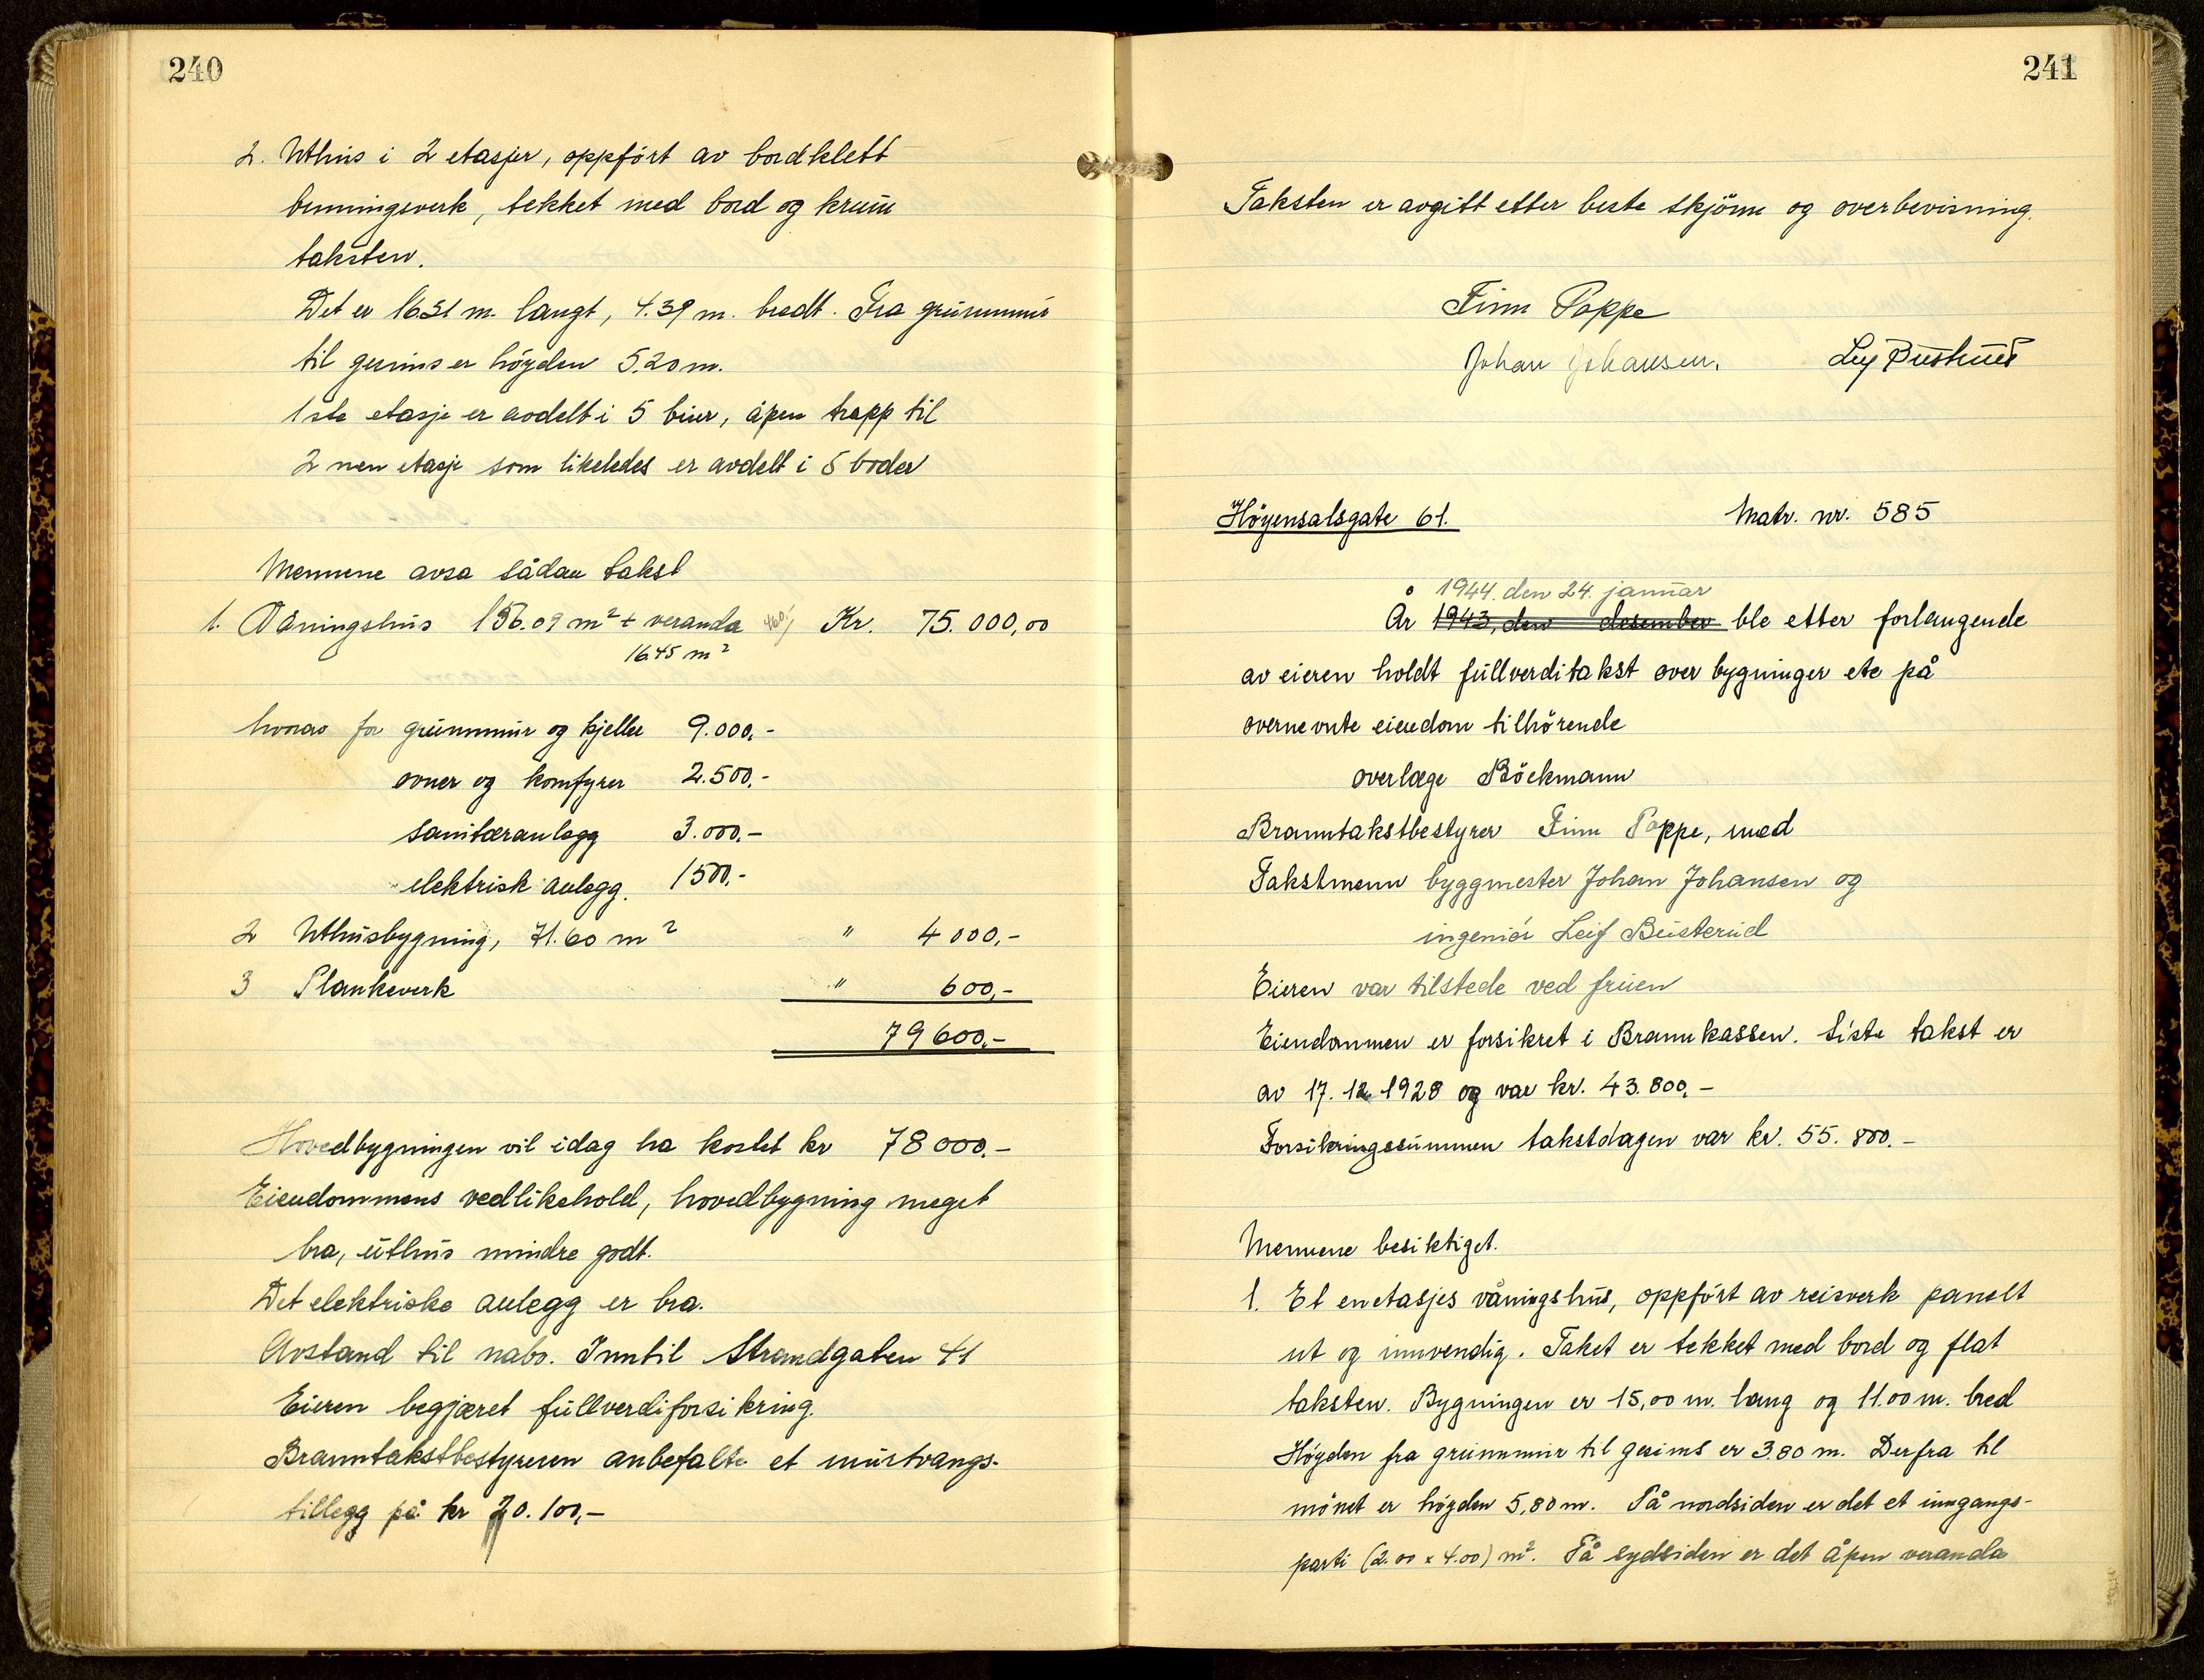 240
2. Uthus i 2 etasjer, oppført av bordklett
binningsverk, tekket med bord og krum
taksten.
Det er 16.31 m. langt, 4.39 m. bredt. Fra grunnmur
til gesims er høyden 5.20 m.
1ste etasje er avdelt i 5 biur, åpen trapp til
2 nen etasje som likeledes er avdelt i 5 boder
Mennene avsa sådan takst
1. Våningshus 156.09 m² + veranda Kr. 75.000,00
16.45 m²
hvorav for grunnmur og kjeller 9.000.-
ovner og komfyrer 2.500.-
sanitæranlegg 3.000.-
elektrisk anlegg. 1500.-
2 Uthusbygning, 71.60 m² " 4 000,-
3 Plankeverk " 600,-
79 600.-
Hovedbygningen vil idag ha kostet kr 78 000.-
Eiendommens vedlikehold, hovedbygning meget
bra, uthus mindre godt.
Det elektriske anlegg er bra.
Avstand til nabo. Inntil Strandgaten 41
Eieren begjæret fullverdiforsikring.
Branntakstbestyreren anbefalte et murtvangs-
tillegg på kr 20.100,-
241
Taksten er avgitt etter beste skjønn og overbevisning.
Finn Poppe
Johan Johansen. Leif Busterud
Høyensalsgate 61. Matr. nr. 585
1944. den 24. januar
År 1943, den desember ble etter forlangende
av eieren holdt fullverditakst over bygninger etc på
overnevnte eiendom tilhørende
overlæge Böckmann
Branntakstbestyrer Finn Poppe, med
Takstmenn byggmester Johan Johansen og
ingeniør Leif Busterud
Eieren var tilstede ved fruen
Eiendommen er forsikret i Brannkassen. Siste takst er
av 17. 12 1928 og var kr. 43.800,-
Forsikringssummen takstdagen var kr. 55.800.-
Mennene besiktiget.
1. Et enetasjes våningshus, oppført av reisverk panelt
ut og innvendig. Taket er tekket med bord og flat
taksten. Bygningen er 15,00 m. lang og 11.00 m. bred
Høyden fra grunnmur til gesims er 3.80 m. Derfra til
mønet er høyden 5,80 m. På nordsiden er det et inngangs-
parti (2.00 x 4.00) m². På sydsiden er det åpen veranda